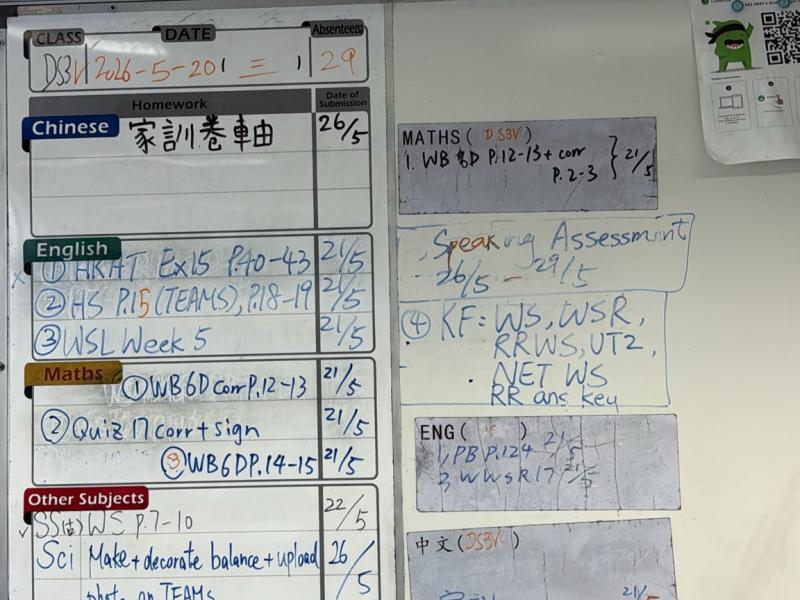 CLASS DATE Absentee(s)
DS3V 2026-5-20 三 29
Homework Date of Submission
Chinese 家訓卷軸 26/5
English
① HKAT Ex15 P.40-43 21/5
② HS P.15 (TEAMS), P.18-19 21/5
③ WSL Week 5 21/5
Maths
① WB6D corr P.12-13 21/5
② Quiz 17 corr + sign 21/5
③ WB6D P.14-15 21/5
Other Subjects
SS(古) WS P.7-10 22/5
Sci Make + decorate balance + upload 26/5
photo on TEAMS
MATHS ( DS3V )
1. WB 6D P.12-13 + corr
P.2-3 } 21/5
Speaking Assessment
26/5 - 29/5
④ KF: WS, WSR,
RRWS, UT2,
NET WS
RR ans key
ENG (
1, PB P.124 21/5
2, WWSR17 21/5
中文 (DS3V )
21/5